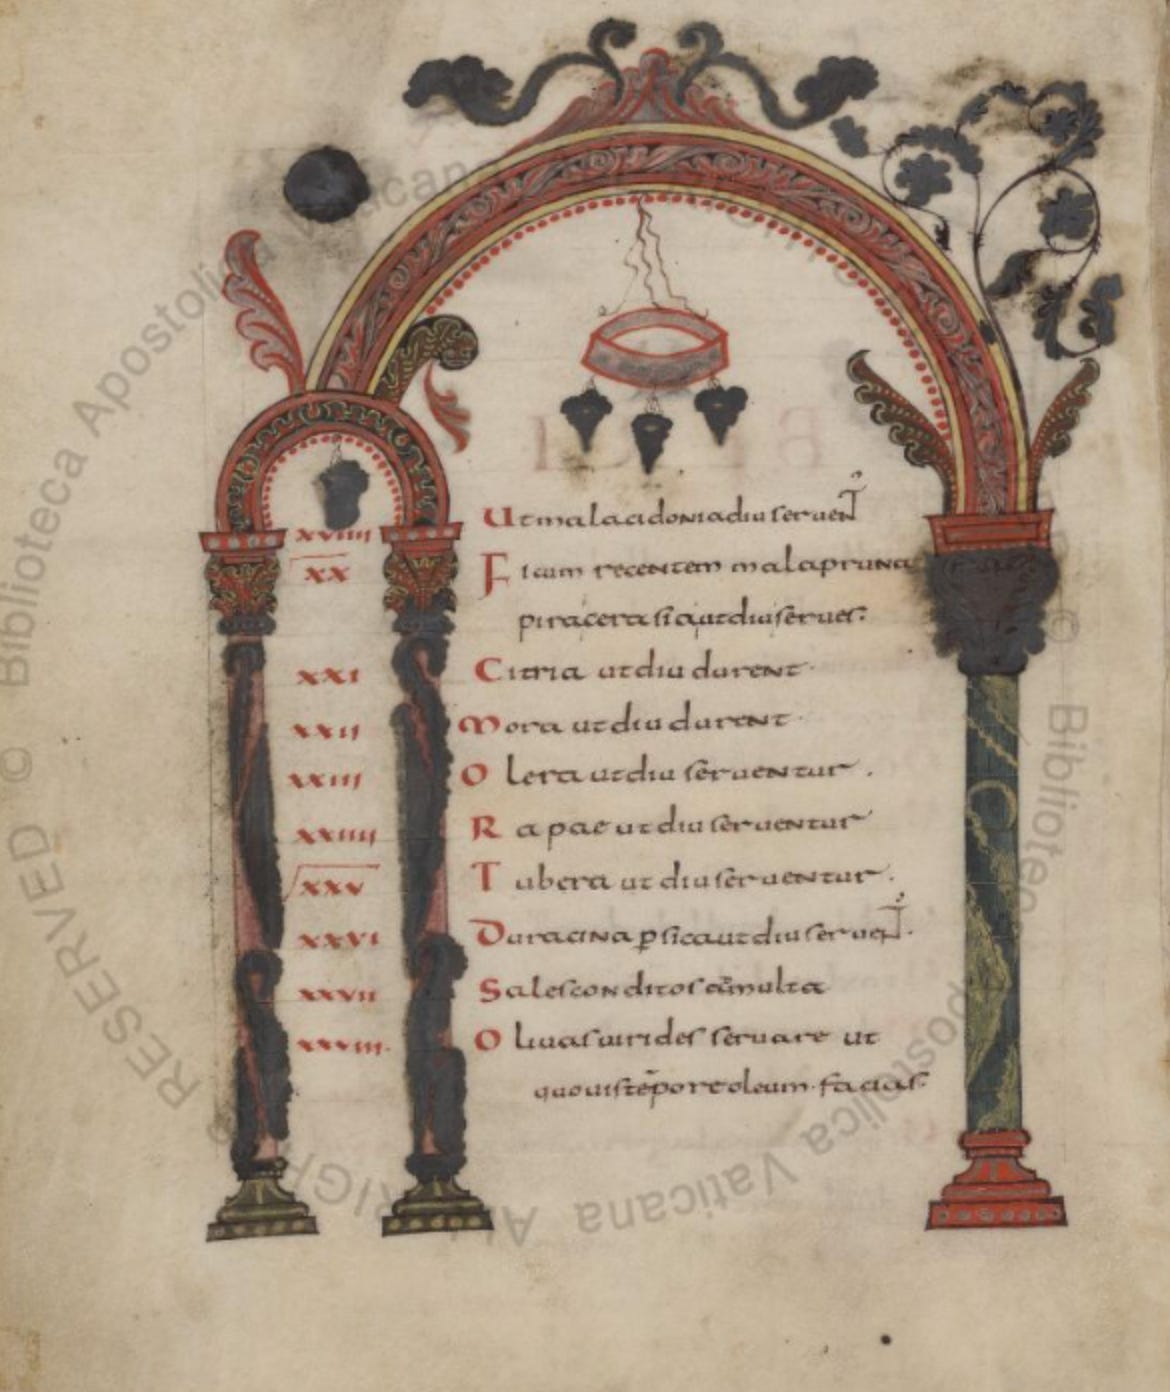 xviiii Ut mala cidonia diu serventꝰ
xx Ficum recentem mala pruna
pira cerasia ut diu serves.
xxi Citria ut diu durent.
xxii Mora ut diu durent.
xxiii Olera ut diu serventur.
xxiiii Rapae ut diu serventur
xxv Tubera ut diu serventur.
xxvi Duracina ꝑsica ut diu serventꝰ.
xxvii Sales conditos ad multa
xxviii. Olivas virides servare ut
quovis tēpore oleum facias.
© Biblioteca Apostolica Vaticana
RIGHTS RESERVED
© Biblioteca Apostolica Vaticana